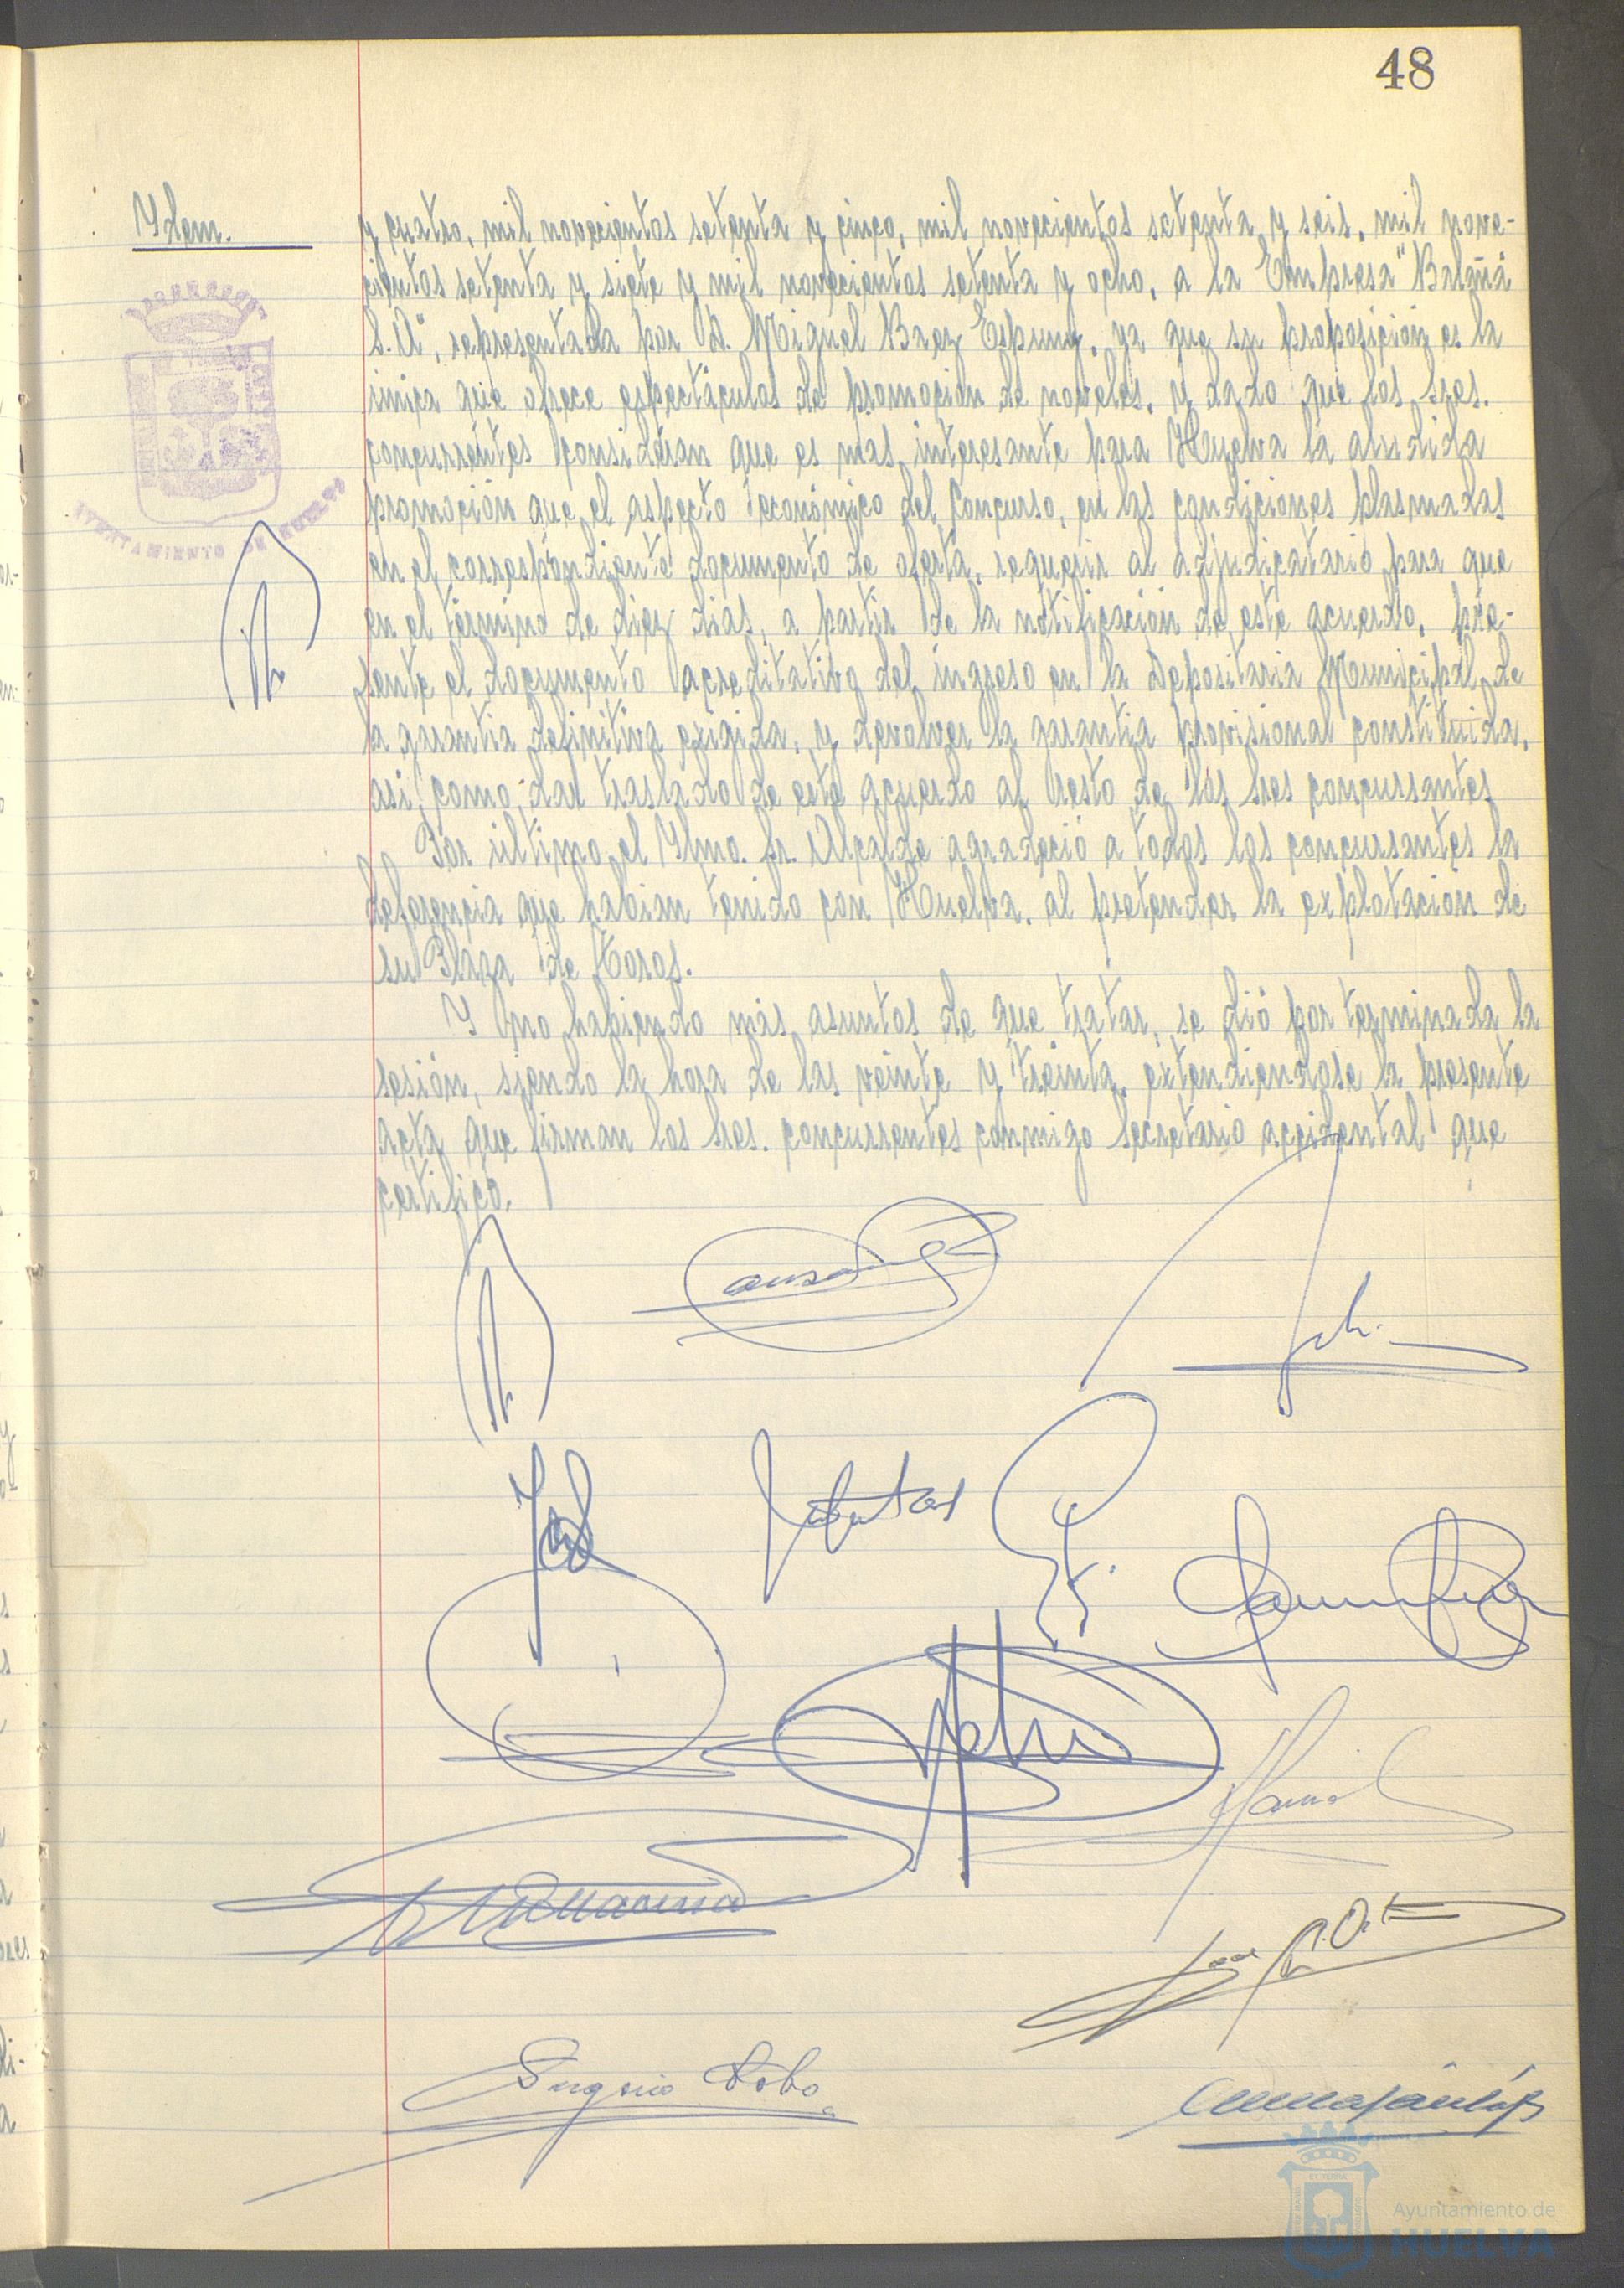 48
Ydem.
y cuatro, mil novecientos setenta y cinco, mil novecientos setenta y seis, mil nove-
cientos setenta y siete y mil novecientos setenta y ocho, a la Empresa "Balañá
S.A", representada por D. Miguel Baez Espuny, ya que su proposición es la
única que ofrece espectáculos de promoción de noveles, y dado que los Sres.
concurrentes consideran que es mas interesante para Huelva la aludida
promoción que el aspecto económico del Concurso, en las condiciones plasmadas
en el correspondiente documento de oferta, requerir al adjudicatario para que
en el término de diez dias, a partir de la notificación de este acuerdo, pre-
sente el documento acreditativo del ingreso en la Depositaria Municipal de
la garantia definitiva exigida, y devolver la garantia provisional constituida,
asi como dar traslado de este acuerdo al resto de los Sres concursantes
Por último el Ylmo. Sr. Alcalde agradeció a todos los concursantes la
deferencia que habian tenido con Huelva, al pretender la explotación de
su Plaza de Toros.
Y no habiendo más asuntos de que tratar, se dió por terminada la
sesión, siendo la hora de las veinte y treinta, extendiendose la presente
acta que firman los Sres. concurrentes conmigo Secretario accidental que
certifico.
AYUNTAMIENTO DE HUELVA
Eugenio Lobo
Ayuntamiento de
HUELVA